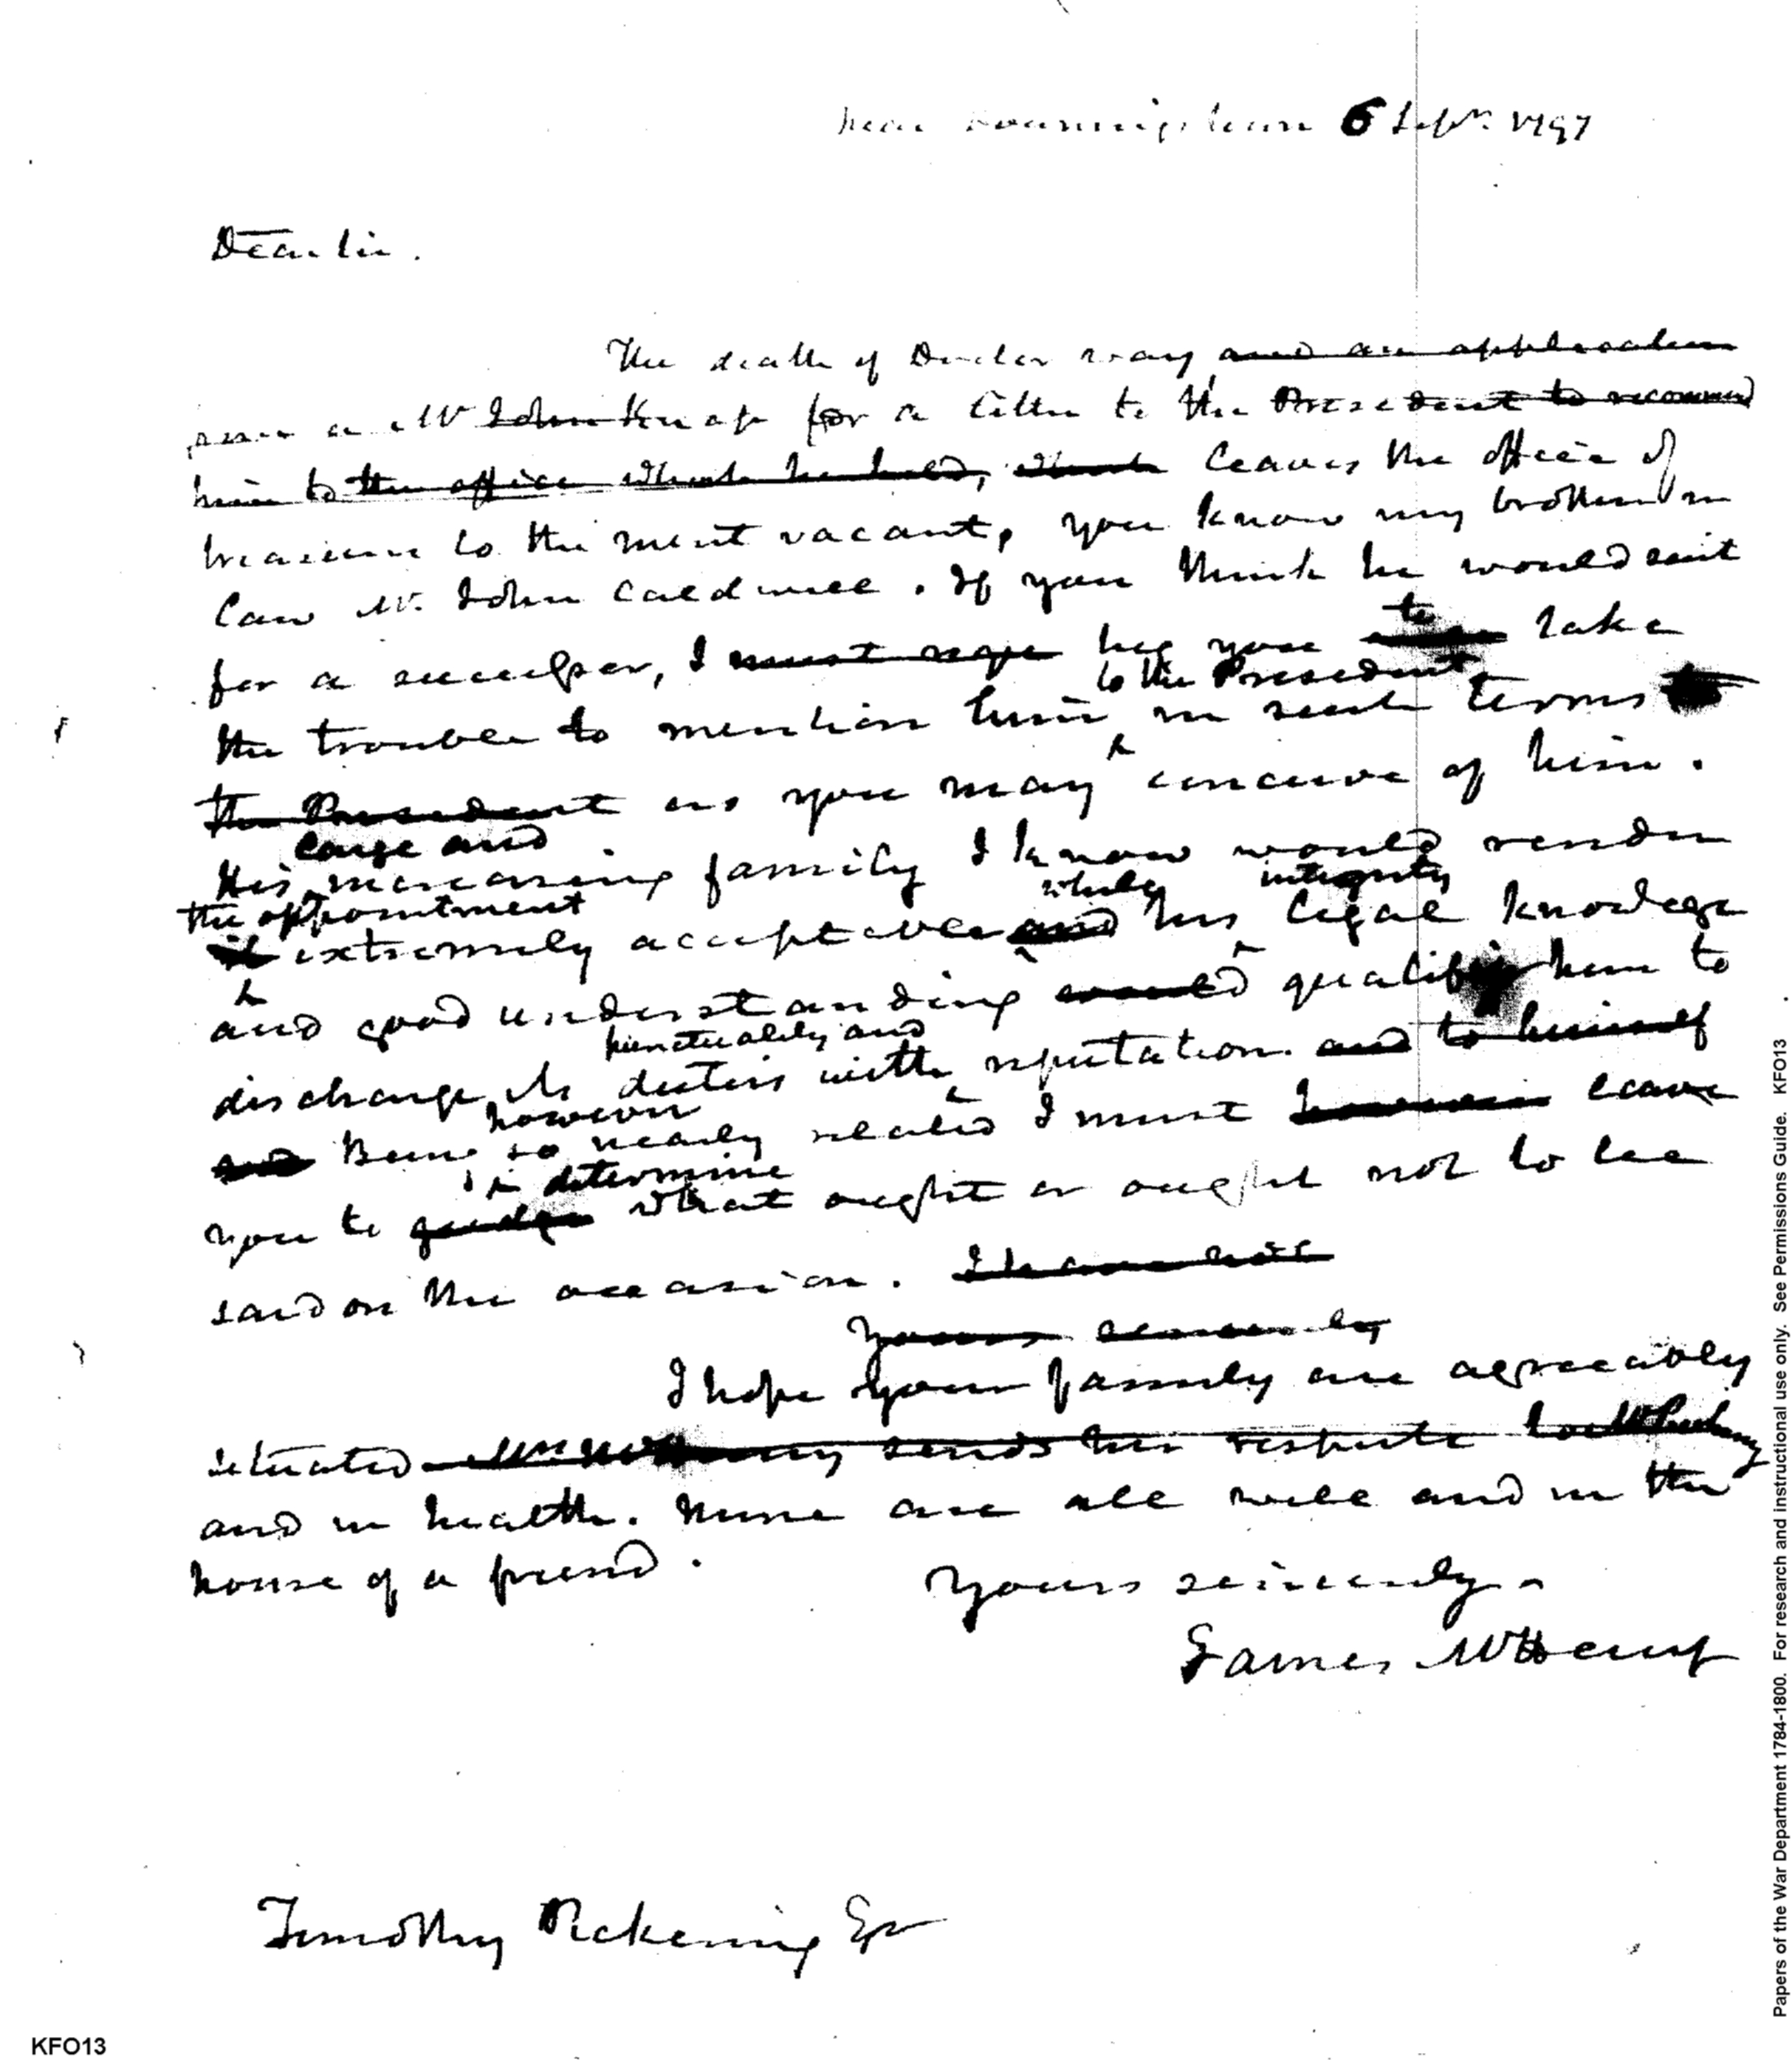 near Downingstown 6 Sepr. 1797
Dear Sir.
The death of Doctor Way and an application
from a Mr John Knap for a letter to the President to recommend
him to the office which he held, which leaves the office of
treasurer to the mint vacant, you know my brother in
law Mr. John Caldwell. If you think he would suit
for a successor, I must reque beg you to take
to the President
the trouble to mention him in such terms to
the President as you may conceive of him.
large and
His increasing family I know would render
the appointment while integrity
it extremely acceptable and his legal knowlege
and good understanding would qualify him to
punctuality and
discharge its duties with reputation. and to himself
however
and Being so nearly related I must however leave
determine
you to judge what ought or ought not to be
said on the occasion. I have not
Yours sincerely
I hope your family are agreeably
situated Mrs McHenry sends her respects to Mrs Pickering
and in health. Mine are all well and in the
house of a friend.
Yours sincerely
James McHenry
Timothy Pickering Esr
KFO13
Papers of the War Department 1784-1800. For research and instructional use only. See Permissions Guide. KFO13